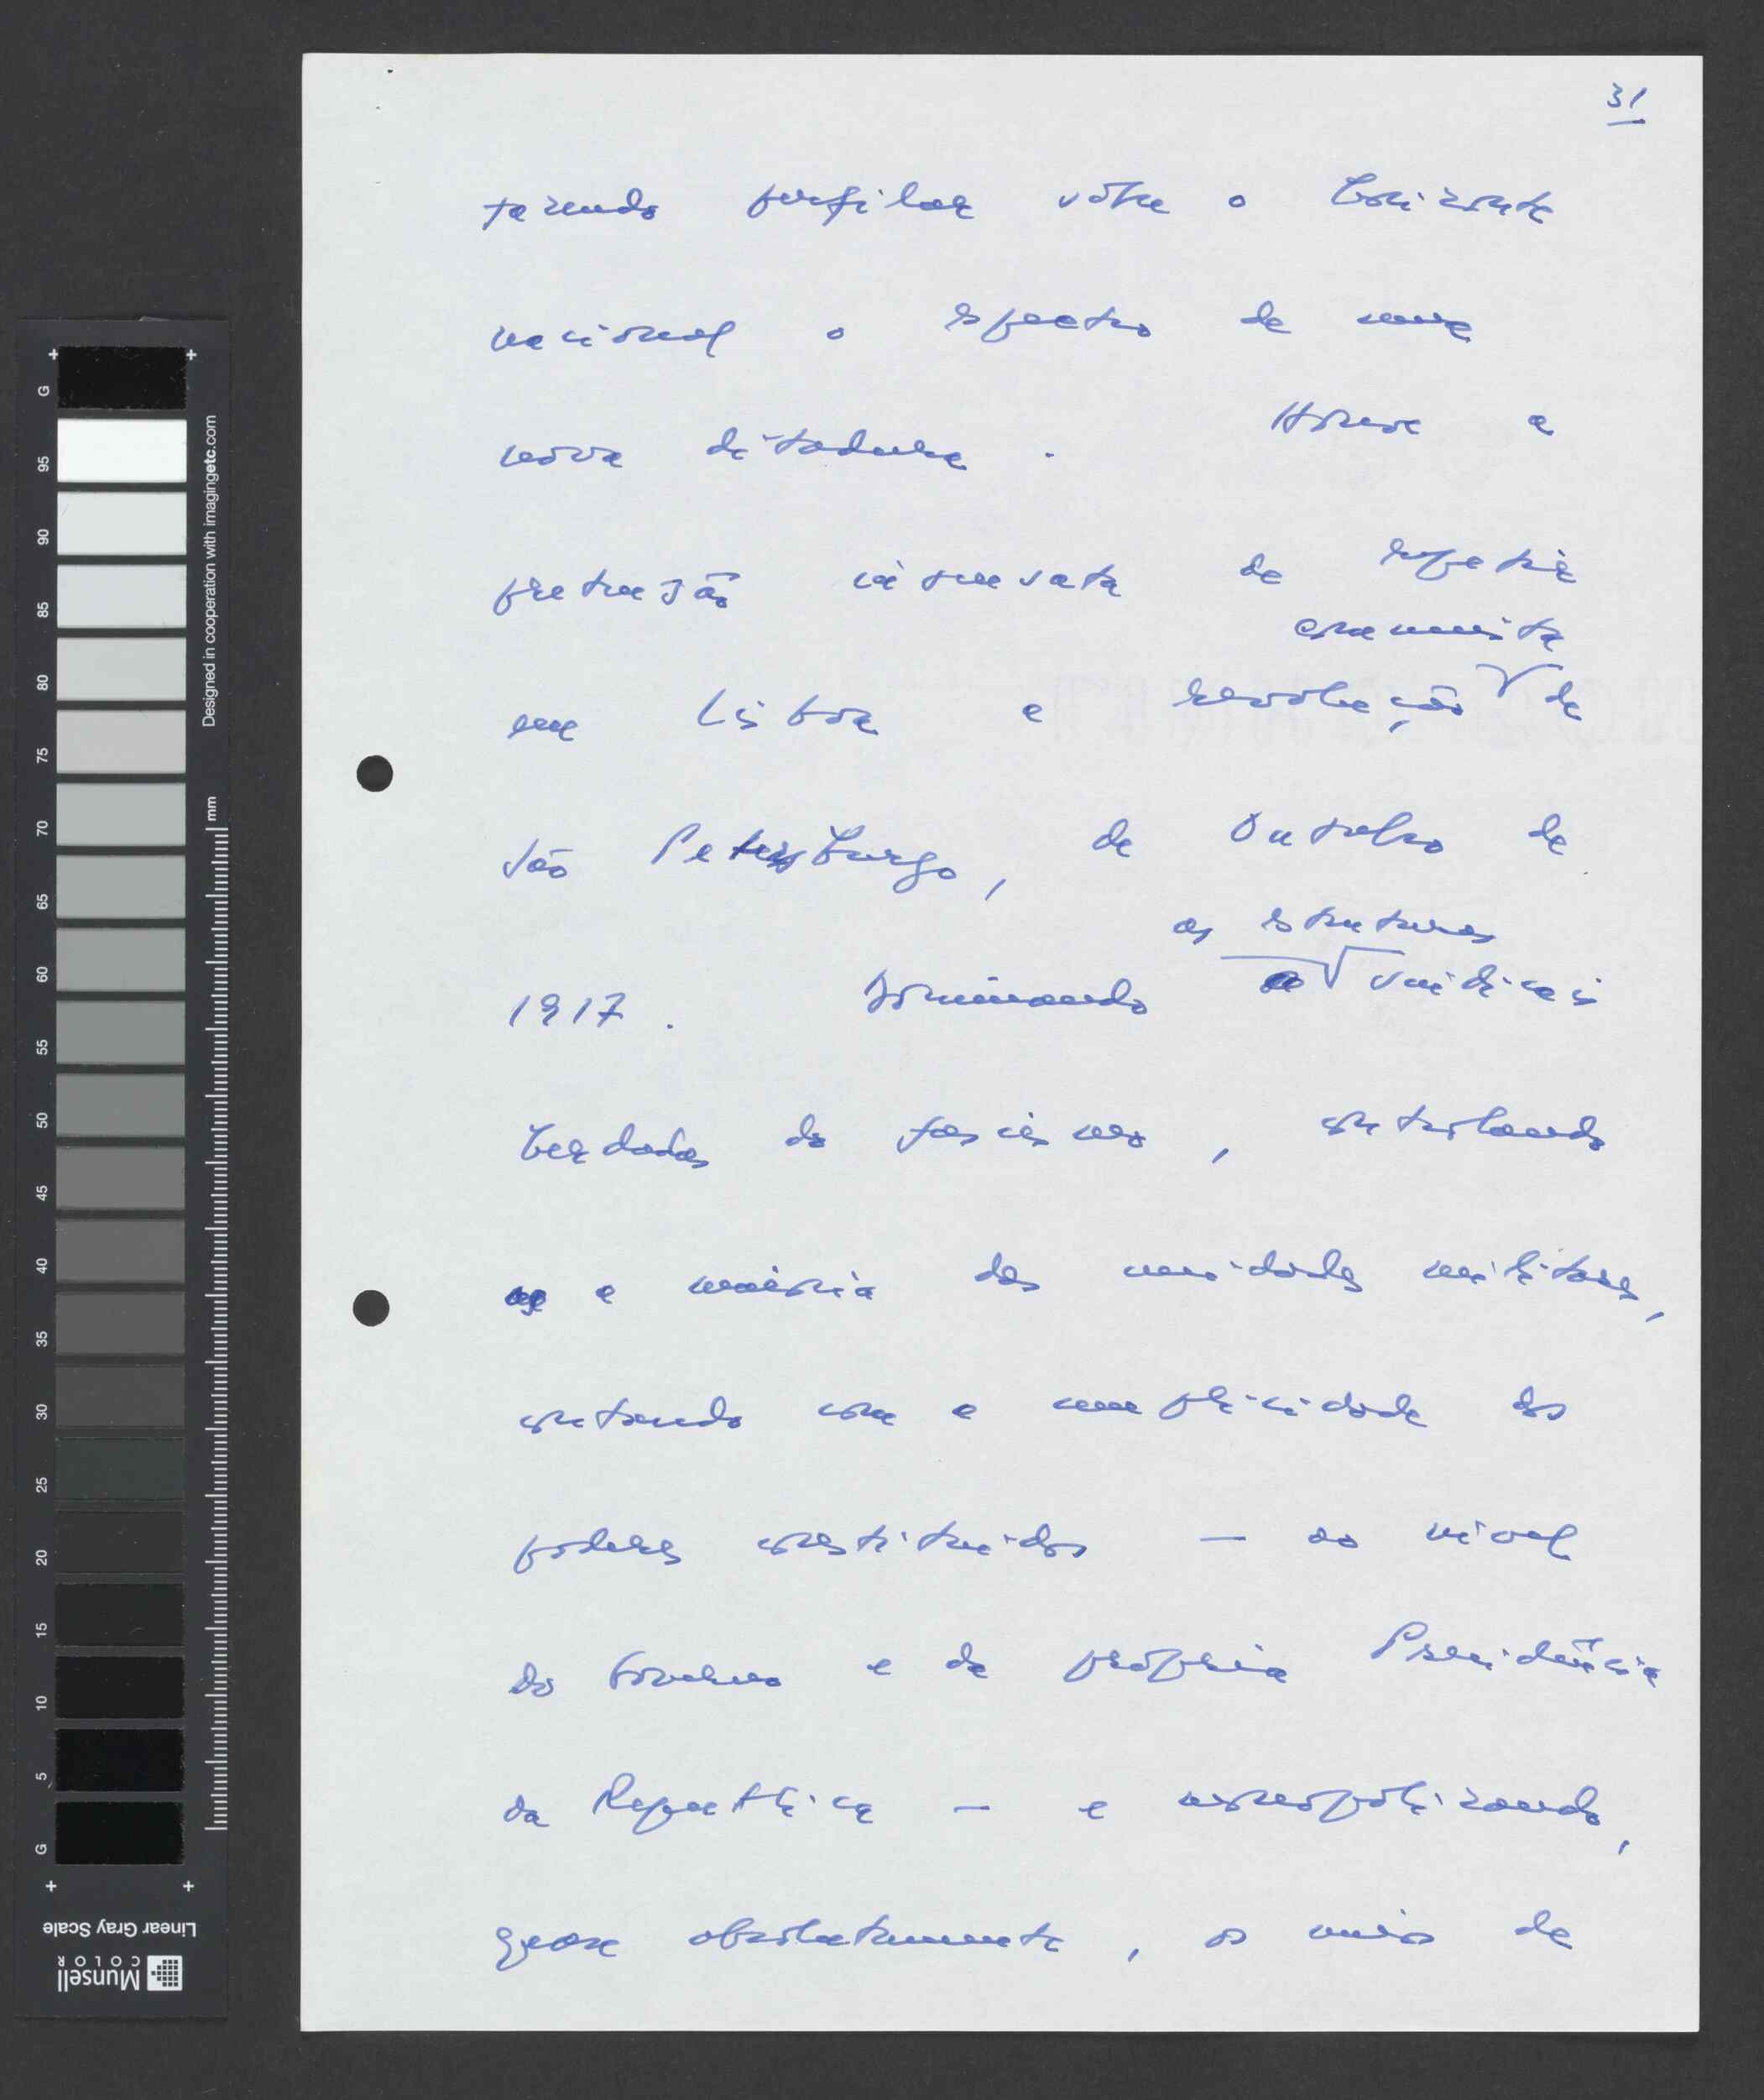 31
fazendo perfilar sobre o horizonte
nacional o espectro de uma
nova ditadura. Houve a
pretensão insensata de repetir
comunista
em Lisboa a revolução de
São Petersburgo, de Outubro de
as estruturas
1917. Dominando sindicais
herdadas do fascismo, controlando
a maioria das unidades militares,
contando com a cumplicidade dos
poderes constituidos — ao nível
do Governo e da própria Presidência
da República — e monopolizando,
quase absolutamente, os meios de
G
95
90
85
80
75
70
65
60
55
50
45
40
35
30
25
20
15
10
5
G
Designed in cooperation with imagingetc.com
mm
Linear Gray Scale
Munsell
COLOR